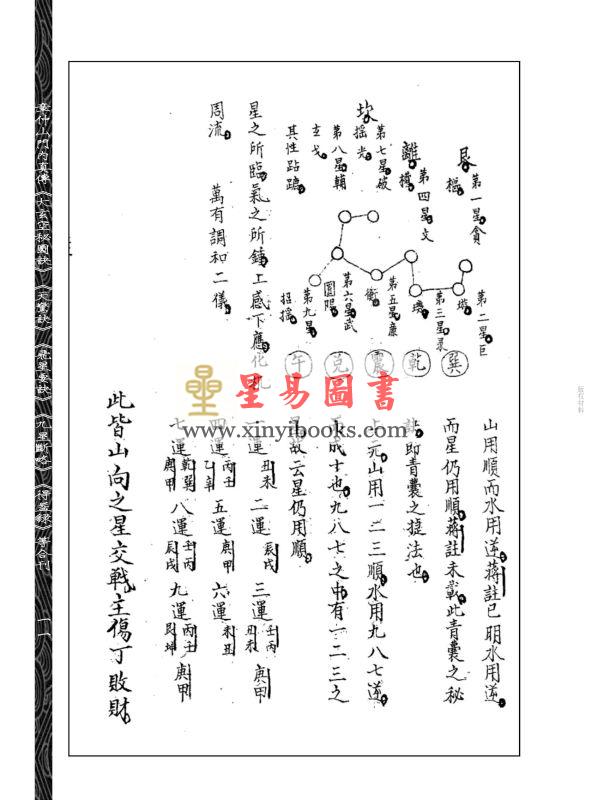 山用順而水用逆蔣註已明水用逆
而星仍用順蔣註未載此青囊之秘
訣即青囊之捷法也
上元山用一二三順水用九八七逆
而成十也九八七之中有一二三之
星故云星仍用順
一運 丑未 二運 辰戌 三運 壬丙 庚甲
四運 丙壬 乙辛 五運 庚甲 六運 未丑 丑未
七運 乾巽 庚甲 八運 壬丙 辰戌 九運 丙壬 艮坤 庚甲
此皆山向之星交戰主傷丁敗財
第一星貪
樞
艮
第二星巨
璇
第三星彔
璣
第四星文
權
離
第五星廉
衡
第六星武
開陽
第七星破
搖光
坎
第八星輔
玄戈
其性跕蹠
第九星
招搖
巽
乾
震
兌
午
星之所臨氣之所鍾上感下應化机
周流 萬有調和二儀
星易圖書
www.xinyibooks.com
版权材料
章仲山門內真傳
《大玄空秘圖訣》
《九星斷略》
《得益錄》
等合刊
一一